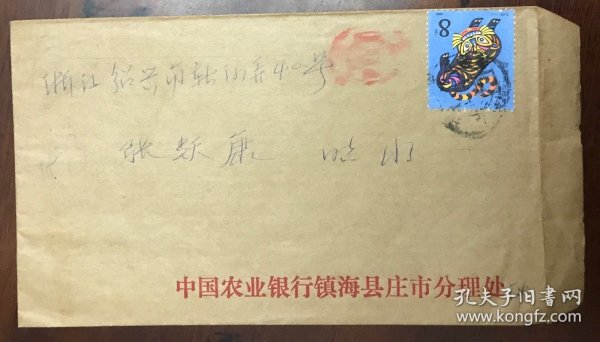 8
浙江绍兴市新河弄40号
张
中国农业银行镇海县庄市分理处
孔夫子旧书网
www.kongfz.com